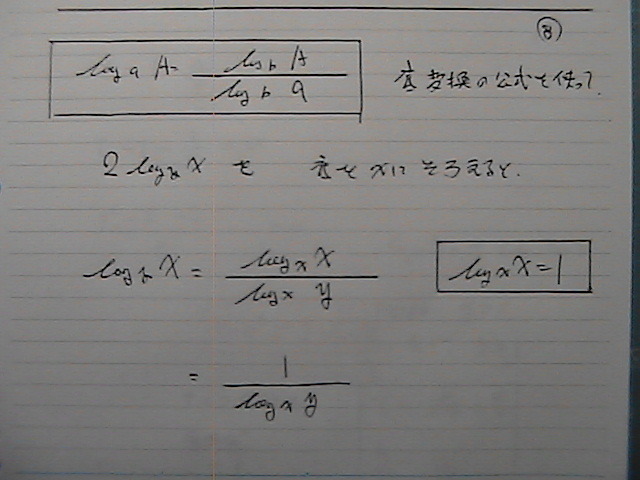 ③
log_a A = log_b A / log_b a 底変換の公式を使って.
2 log_y X を 底を xに そろえると.
log_y X = log_x X / log_x y log_x X = 1
= 1 / log_x y